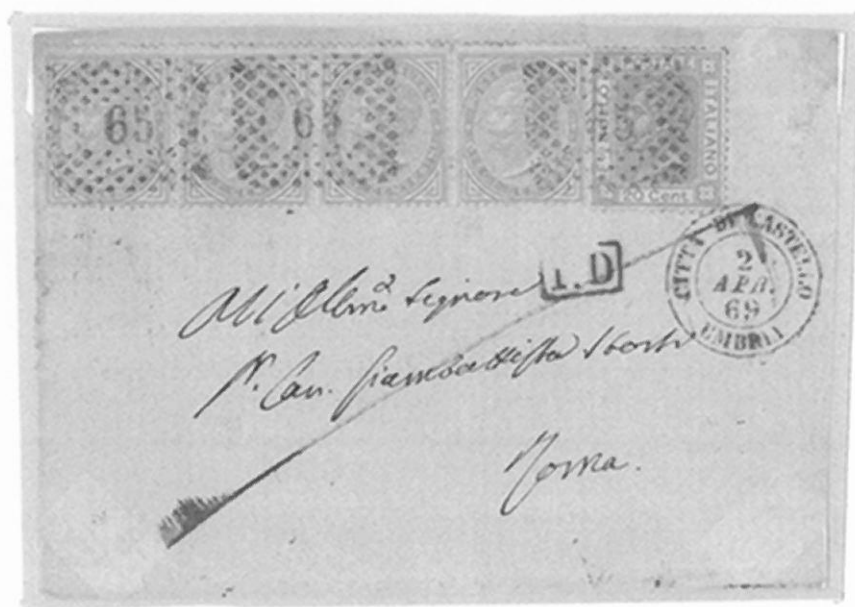 65 65 5
ITALIANO
20 Cent
P.D
CITTÀ DI CASTELLO
2
APR.
69
UMBRIA
All'Illmo Signore
Sr. Cav. Giambattista
Roma.